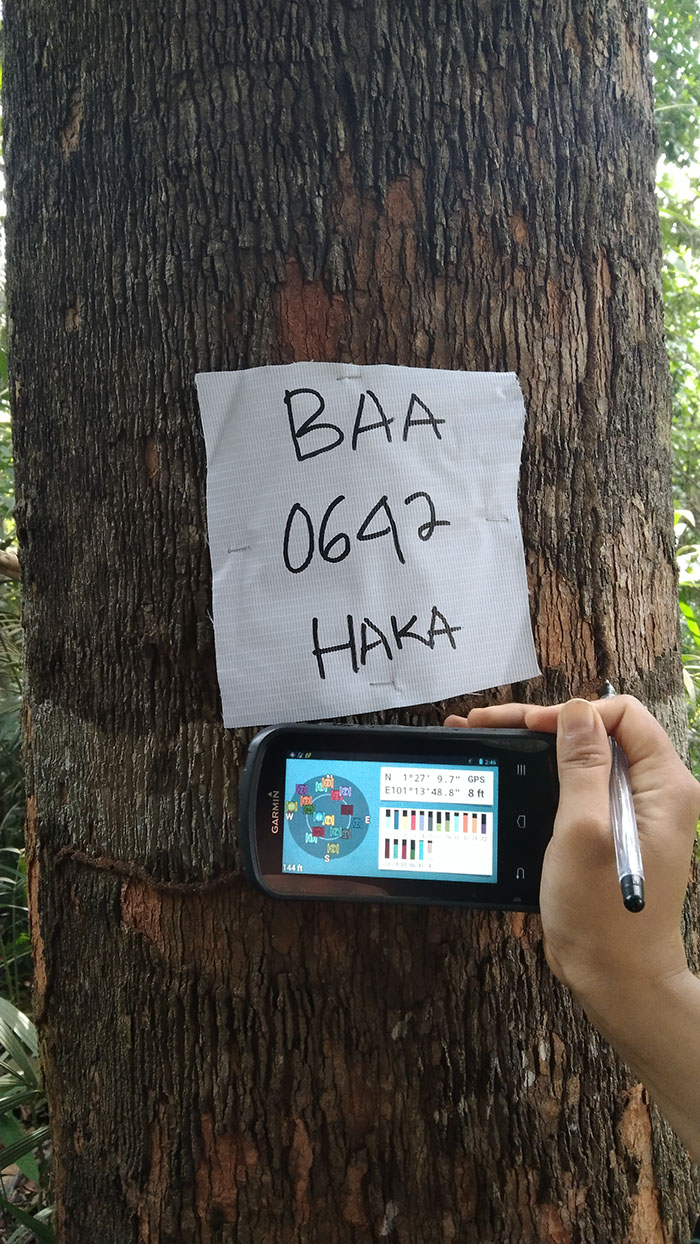 BAA
0642
HAKA
GARMIN
2:46
N 1°27' 9.7" GPS
E101°13'48.8" 8 ft
N
W
E
S
144 ft